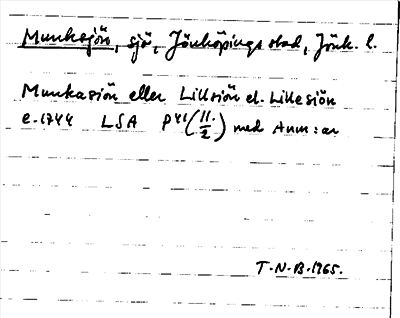 Munksjön, sjö, Jönköpings stad, Jönk. l.
Munkasiön eller Lillsiön el. Lillesiön
e. 1744 LSA P41 (11/2) med Anm:ar
T.N.B. 1965.